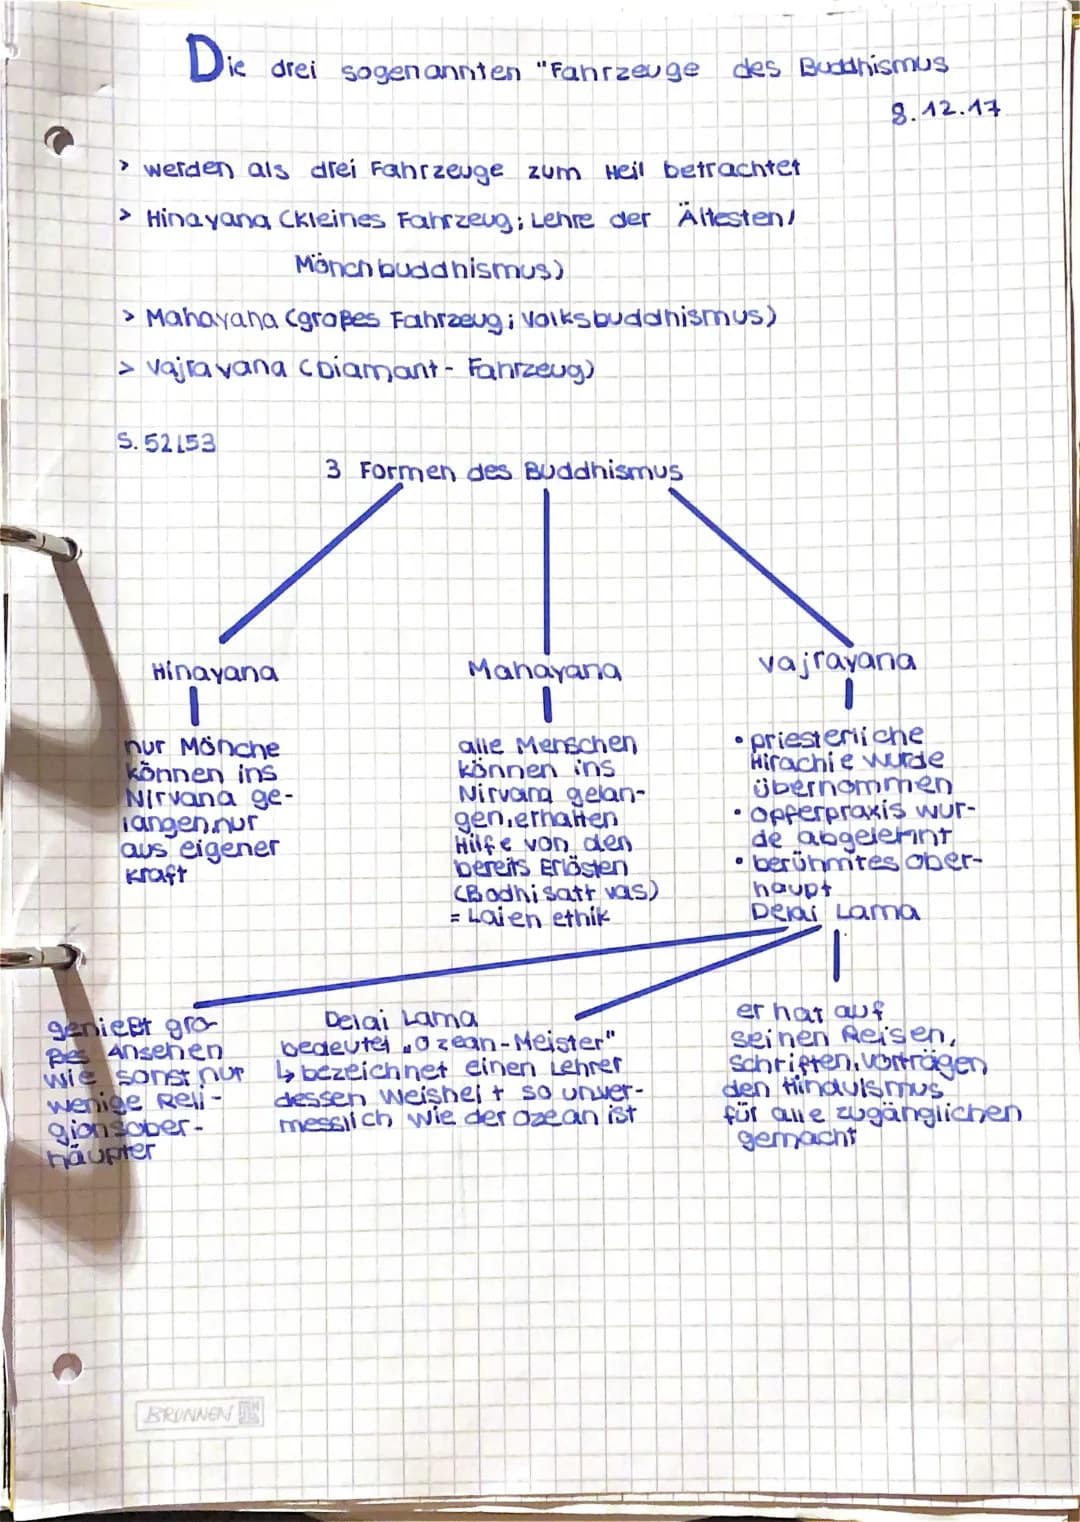 Die drei sogenannten "Fahrzeuge des Buddhismus
8.12.17
> werden als drei Fahrzeuge zum Heil betrachtet
> Hinayana (kleines Fahrzeug; Lehre der Ältesten/
Mönchbuddhismus)
> Mahayana (großes Fahrzeug; Volksbuddhismus)
> Vajrayana (Diamant- Fahrzeug)
S. 52/53
3 Formen des Buddhismus
Hinayana
nur Mönche
können ins
Nirvana ge-
langen, nur
aus eigener
Kraft
Mahayana
alle Menschen
können ins
Nirvana gelan-
gen, erhalten
Hilfe von den
bereits Erlösten
(Bodhisattvas)
= Laien ethik
Vajrayana
• priesterliche
Hirachie wurde
übernommen
• Opferpraxis wur-
de abgelehnt
• berühmtes Ober-
haupt
Delai Lama
genießt gro-
ßes Ansehen
wie sonst nur
wenige Reli-
gionsober-
häupter
Delai Lama
bedeutet „Ozean-Meister"
↳ bezeichnet einen Lehrer
dessen Weisheit so unver-
messlich wie der Ozean ist
er hat auf
seinen Reisen,
Schriften, Vorträgen
den Hinduismus
für alle zugänglichen
gemacht
BRUNNEN